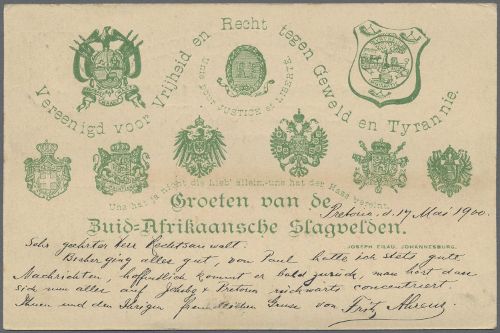 Vereenigd voor Vrijheid en Recht tegen Geweld en Tyrannie.
JUSTICE et LIBERTÉ
Uns hat ja nicht die Lieb' allein, uns hat der Hass vereint.
Groeten van de
Zuid-Afrikaansche Slagvelden.
Pretoria, d. 17 Mai 1900.
JOSEPH FILAU, JOHANNESBURG.
Sehr geehrter Herr Rechtsanwalt.
Bisher ging alles gut, von Paul hatte ich stets gute
Nachrichten, hoffentlich kommt er bald zurück, man hört dass
sich nun alles auf Johbg & Pretoria concentriert.
Ihnen und den Ihrigen freundlichen Gruss von Fritz Ahrens